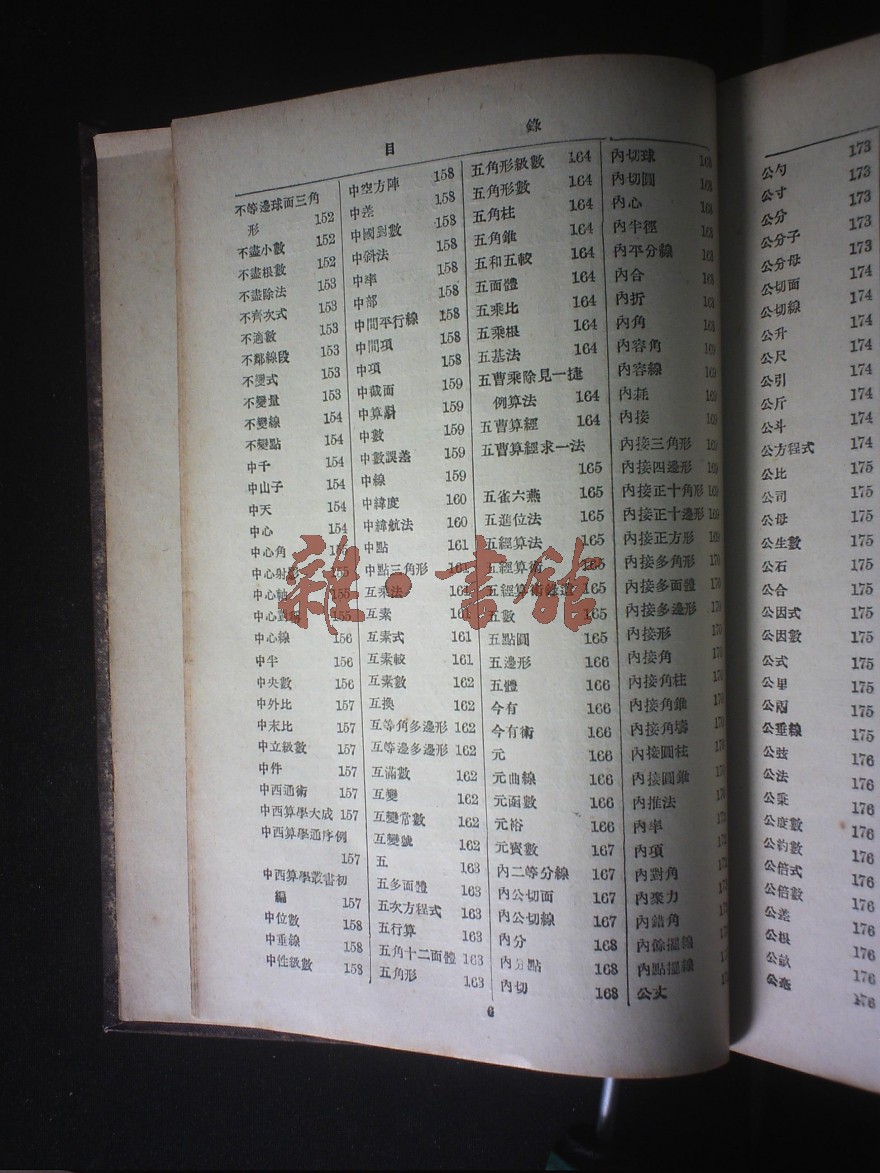 目 錄
不等邊球面三角
形 152
不盡小數 152
不盡根數 152
不盡除法 153
不齊次式 153
不適數 153
不鄰線段 153
不變式 153
不變量 153
不變線 154
不變點 154
中千 154
中山子 154
中天 154
中心 154
中心角 155
中心射影 155
中心軸 155
中心 155
中心線 156
中半 156
中央數 156
中外比 157
中末比 157
中立級數 157
中件 157
中西通術 157
中西算學大成 157
中西算學通序例
157
中西算學叢書初
編 157
中位數 158
中垂線 158
中性級數 158
中空方陣 158
中差 158
中國對數 158
中斜法 158
中率 158
中部 158
中間平行線 158
中間項 158
中項 158
中截面 159
中算斠 159
中數 159
中數誤差 159
中線 159
中緯度 160
中緯航法 160
中點 161
中點三角形 161
互乘法 161
互素 161
互素式 161
互素較 161
互素數 162
互換 162
互等角多邊形 162
互等邊多邊形 162
互滿數 162
互變 162
互變常數 162
互變號 162
五 163
五多面體 163
五次方程式 163
五行算 163
五角十二面體 163
五角形 163
五角形級數 164
五角形數 164
五角柱 164
五角錐 164
五和五較 164
五面體 164
五乘比 164
五乘根 164
五基法 164
五曹乘除見一捷
例算法 164
五曹算經 164
五曹算經求一法
165
五雀六燕 165
五進位法 165
五經算法 165
五經算術 165
五經算術 165
五數 165
五點圓 165
五邊形 166
五體 166
今有 166
今有術 166
元 166
元曲線 166
元函數 166
元裕 166
元賓數 167
內二等分線 167
內公切面 167
內公切線 167
內分 168
內分點 168
內切 168
內切球
內切圓
內心
內半徑
內平分線
內合
內折
內角
內容角
內容線
內耗
內接
內接三角形
內接四邊形
內接正十角形
內接正十邊形
內接正方形
內接多角形
內接多面體
內接多邊形
內接形
內接角
內接角柱
內接角錐
內接角壔
內接圓柱
內接圓錐
內推法
內率
內項
內對角
內聚力
內錯角
內餘擺線
內點擺線
公丈
6
公勺 173
公寸 173
公分 173
公分子 173
公分母 173
公切面 174
公切線 174
公升 174
公尺 174
公引 174
公斤 174
公斗 174
公方程式 174
公比 175
公司 175
公母 175
公生數 175
公石 175
公合 175
公因式 175
公因數 175
公式 175
公里 175
公兩 175
公垂線 175
公弦 176
公法 176
公乘 176
公度數 176
公約數 176
公倍式 176
公倍數 176
公差 176
公根 176
公畝 176
公毫 176
雜·書館